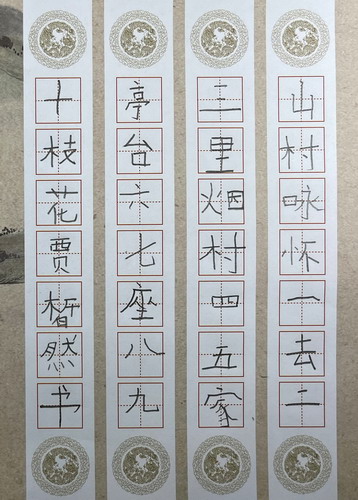 山村咏怀一去二
三里烟村四五家
亭台六七座八九
十枝花贾皙然书